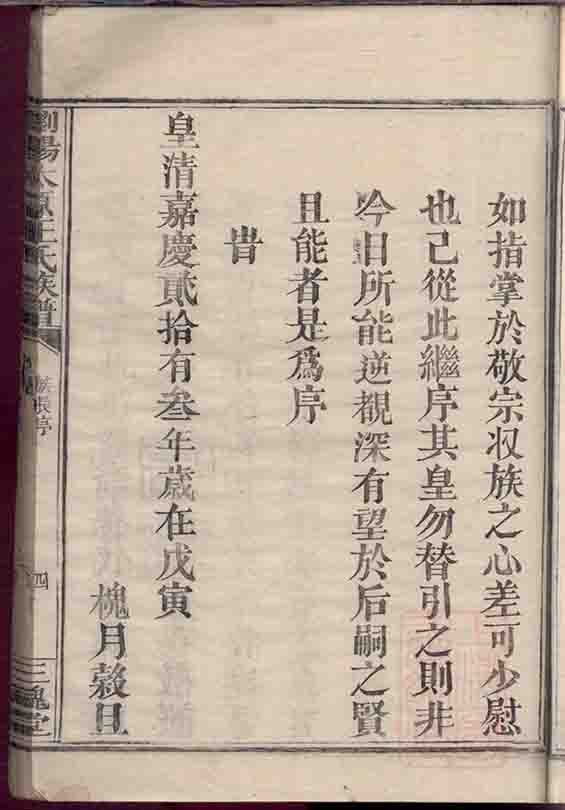 如指掌於敬宗收族之心差可少慰
也己從此繼序其皇勿替引之則非
今日所能逆覩深有望於后嗣之賢
且能者是為序
旹
皇清嘉慶貳拾有叁年歲在戊寅
槐月榖旦
瀏陽太原王氏族譜
族長序
四
三槐堂